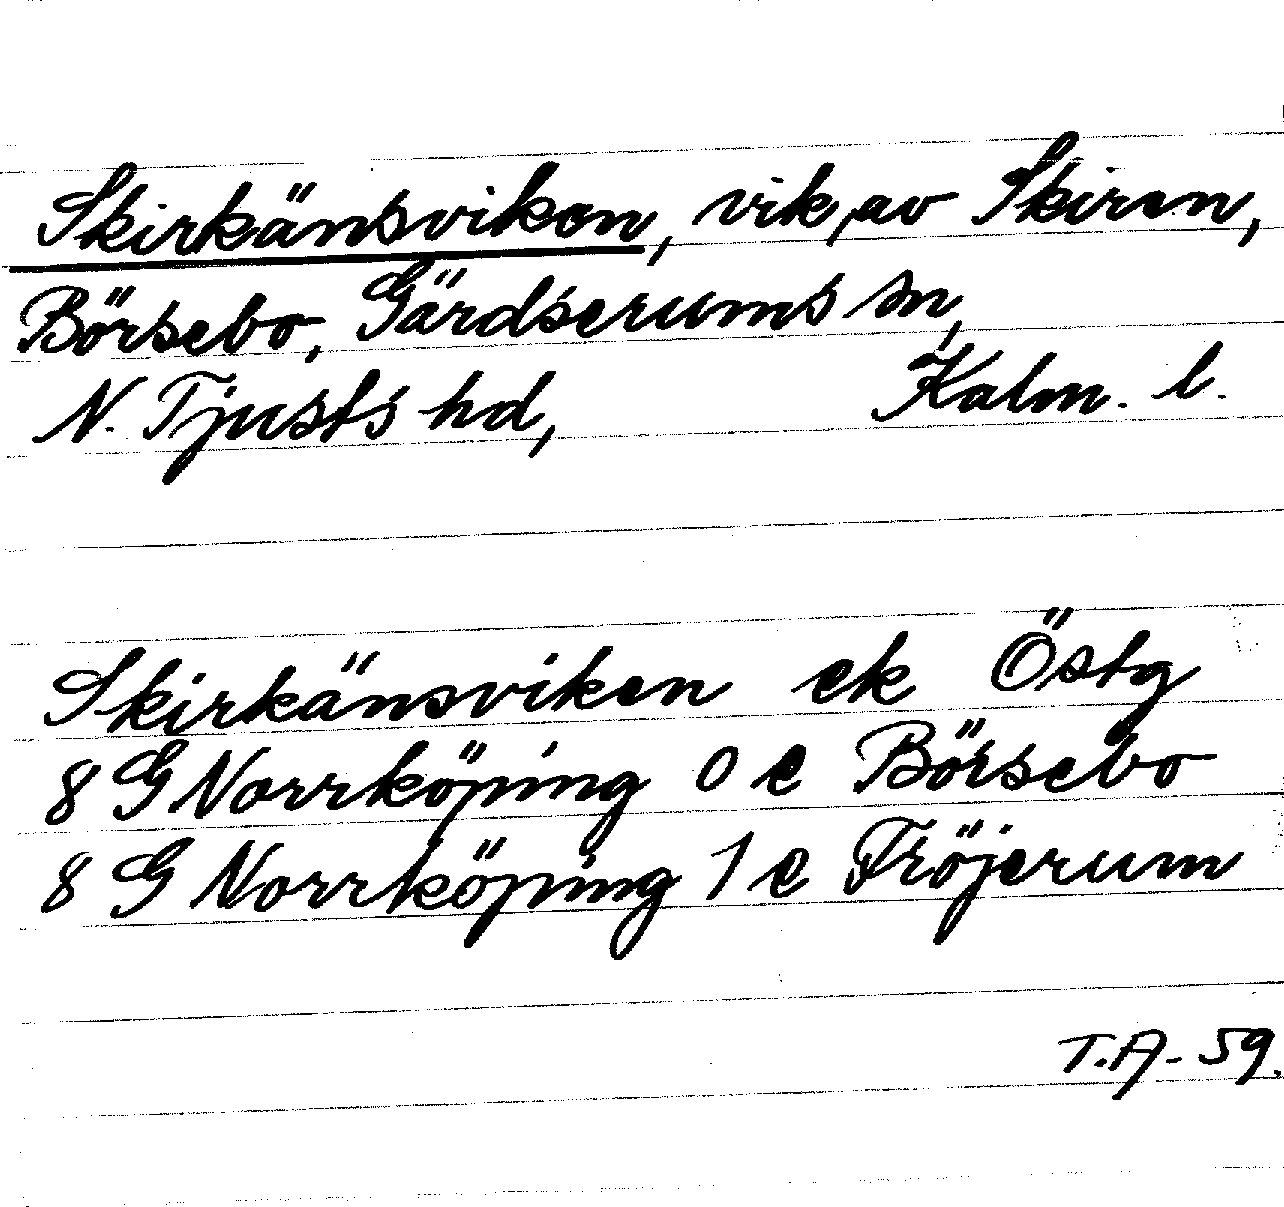 Skirkänsviken, vik, av Skiren,
Börsebo, Gärdserums sn,
N. Tjusts hd, Kalm. l.
Skirkänsviken ek Östg
8 G Norrköping 0 e Börsebo
8 G Norrköping 1 e Fröjerum
T.A-59.